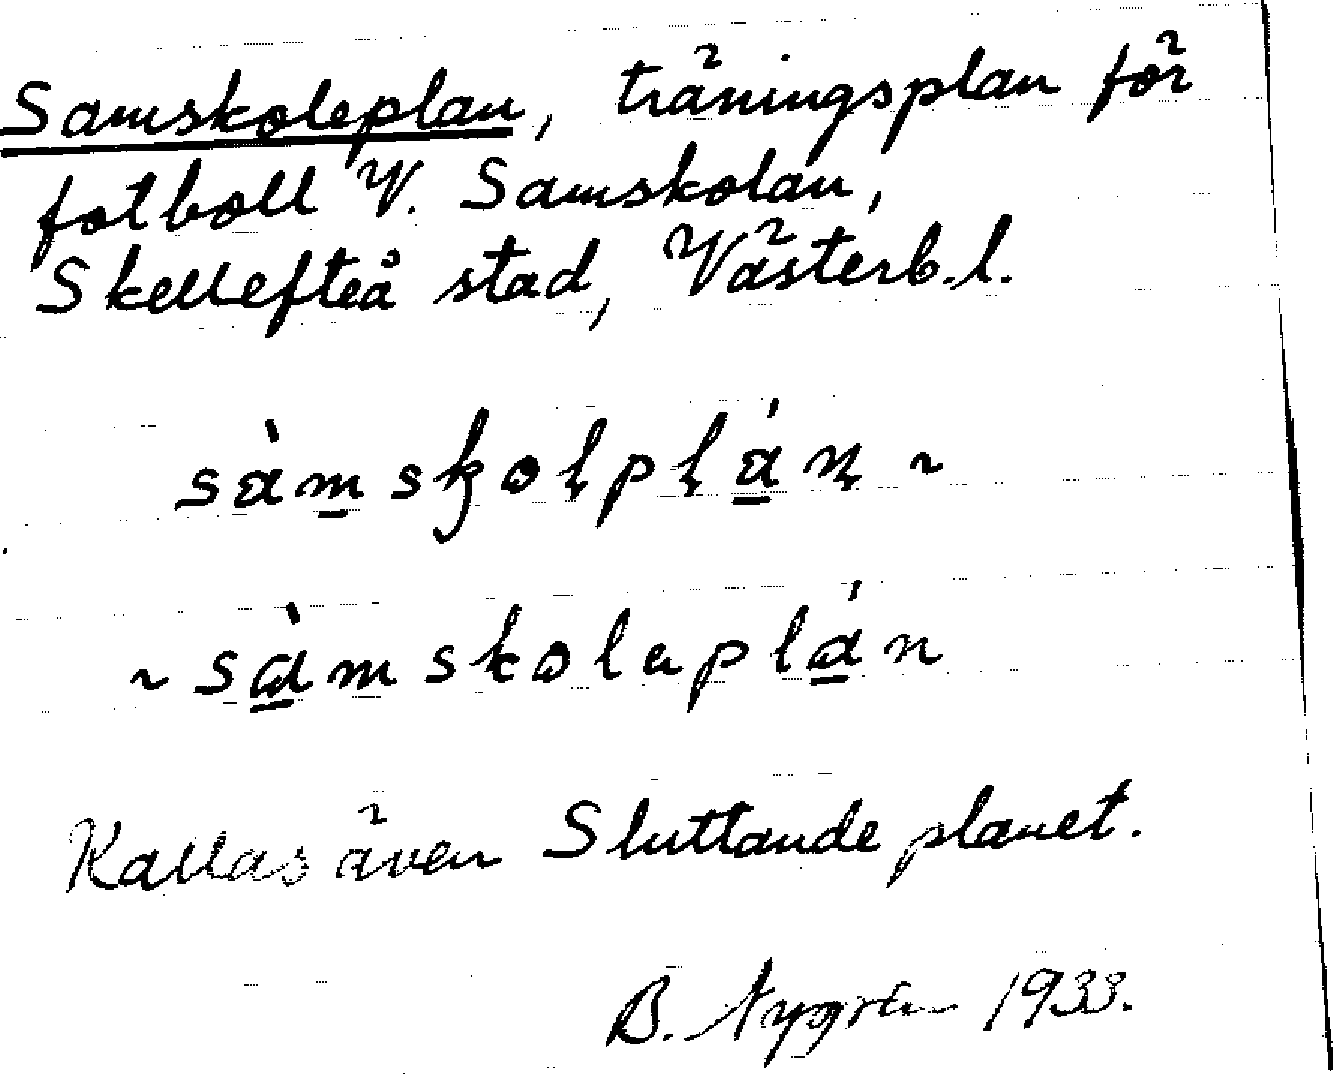 Samskoleplan, träningsplan för
fotboll V. Samskolan,
Skellefteå stad, Västerb.l.
sàmskolplán ~
~ sàmskolaplán
Kallas även Sluttande planet.
B. Nygren 1933.